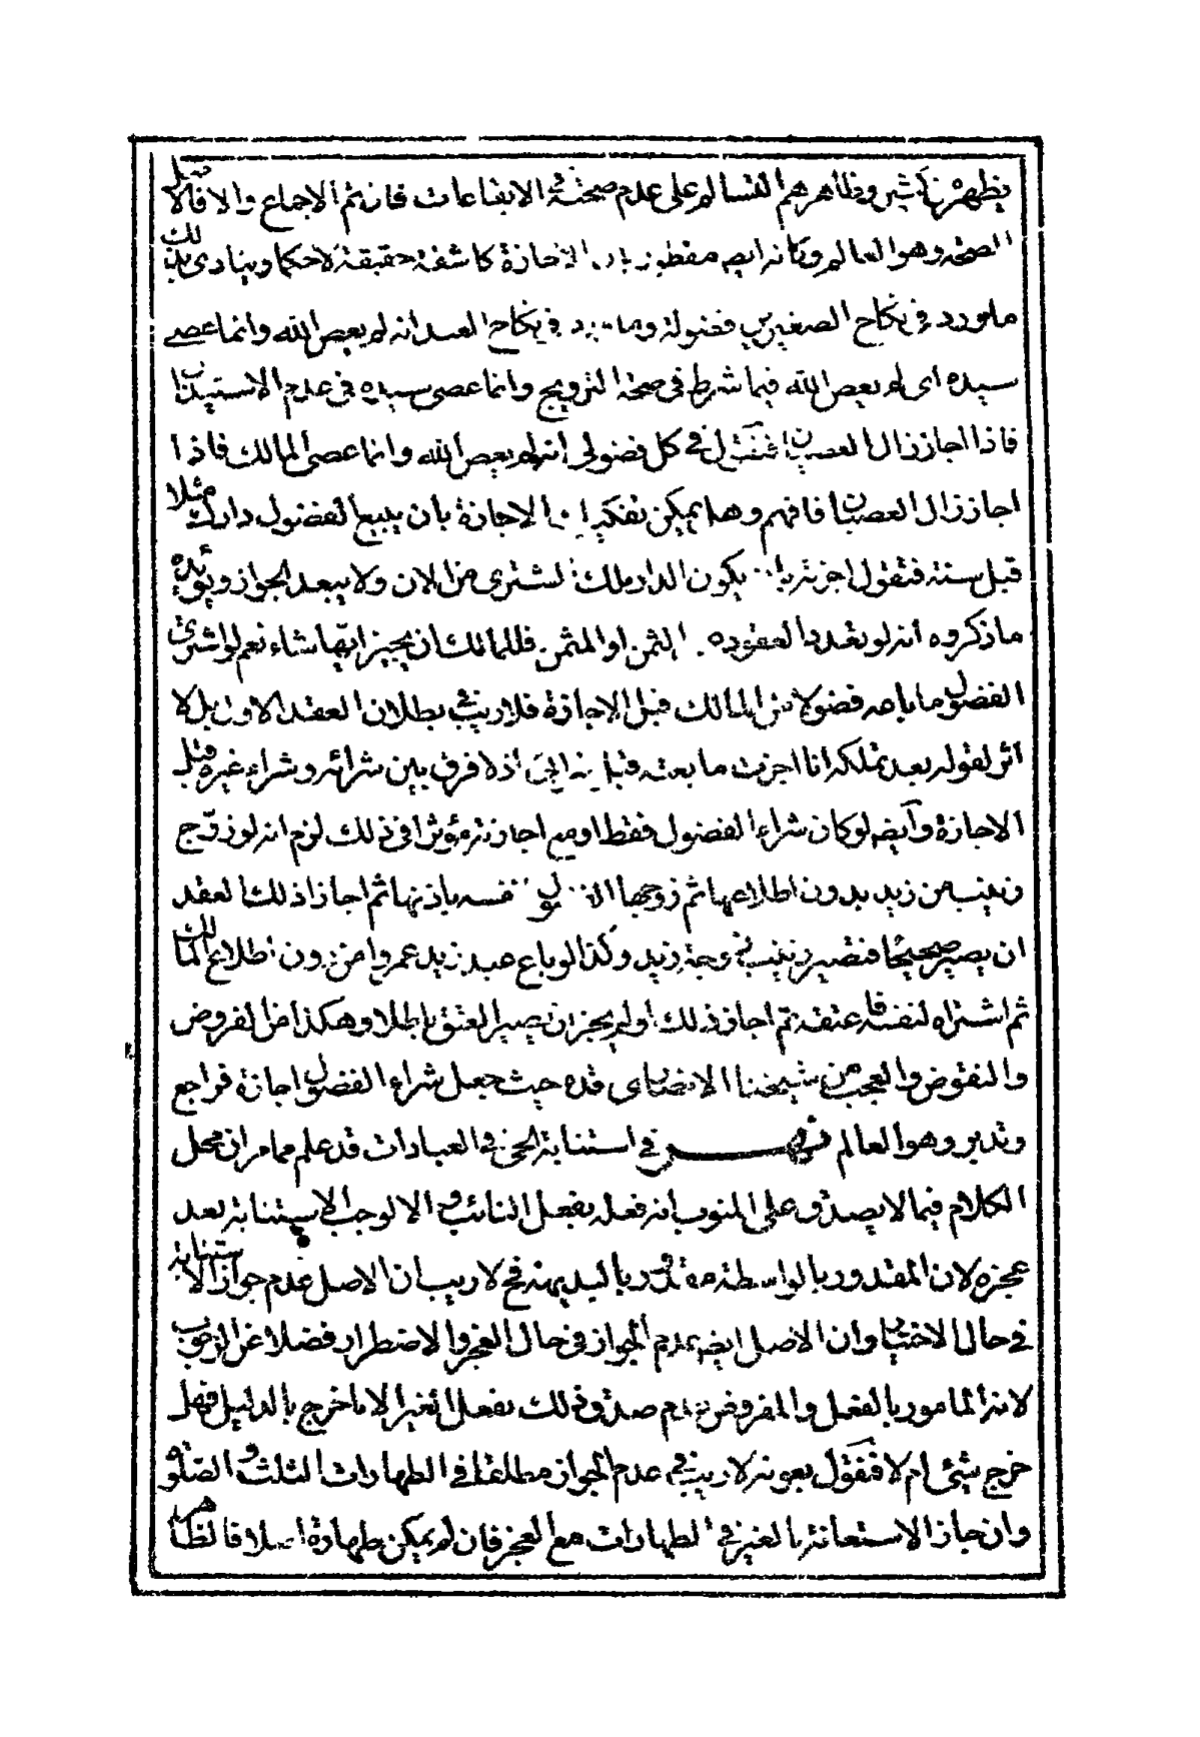 يظهر تاثير وظاهرهم التسالم على عدم صحته في الايقاعات فان تم الاجماع والا فالاصل
الصحة وهو العالم وكانه ايضه مقطوع بان الاجازة كاشفة حقيقة لا حكما وينادى بذلك
ما ورد في نكاح الصغيرين فضولة وما ورد في نكاح العبد انه لم يعص الله وانما عصى
سيده اى لم يعص الله فيما شرط في صحة التزويج وانما عصى سيده في عدم الاستيذان
فاذا اجاز زال العصيان فنقول في كل فضولى انه لم يعص الله وانما عصى المالك فاذا
اجاز زال العصيان فافهم وهل يمكن تفكيك الاجازة بان يبيع الفضول دارك مثلا
قبل سنة فتقول اجزته بان يكون الدار ملك المشترى من الان ولا يبعد الجواز ويؤيده
ما ذكروه انه لو تعدد العقود الثمن او المثمن فللمالك ان يجيز ايها شاء نعم لو اشترى
الفضول ما باعه فضولا من المالك قبل الاجازة فلا ريب في بطلان العقد الاول بل لا
اثر لقوله بعد تملكه انا اجزت ما بعته قبل اذ لا فرق بين شرائه وشراء غيره قبل
الاجازة وايضه لو كان شراء الفضول فقط او مع اجازته مؤثرا في ذلك لزم انه لو زوج
زينب من زيد بدون اطلاعها ثم زوجها نفسه باذنها ثم اجاز ذلك العقد
ان يصير صحيحا فتصير زينب زوجة زيد وكذا لو باع عبد زيد عمروا من دون اطلاع المالك
ثم اشتراه لنفسه فاعتقه ثم اجاز ذلك او لم يجز ان يصير العتق باطلا وهكذا من الفروض
والنقوض والعجب من شيخنا الانصارى قده حيث جعل شراء الفضول اجازة فراجع
وتدبر وهو العالم في استنابة الحى في العبادات قد علم مما مر ان محل
الكلام فيما لا يصدق على المنوب انه فعله بفعل النائب والا لوجب الاستنابة بعد
عجزه لان المقدور بالواسطة مقدور بالبديهة فح لا ريب ان الاصل عدم جواز الاستنابة
في حال الاختيار وان الاصل ايضه عدم الجواز في حال العجز والاضطرار فضلا عن الوجوب
لانه المامور بالفعل والمفروض عدم صدق ذلك بفعل الغير الا ما خرج بالدليل فهل
خرج شيئ ام لا فنقول بعونه لا ريب في عدم الجواز مطلقا في الطهارات الثلث والصلوة
وان جاز الاستعانة بالغير في الطهارات مع العجز فان لم يمكن طهارة اصلا فالظاهر